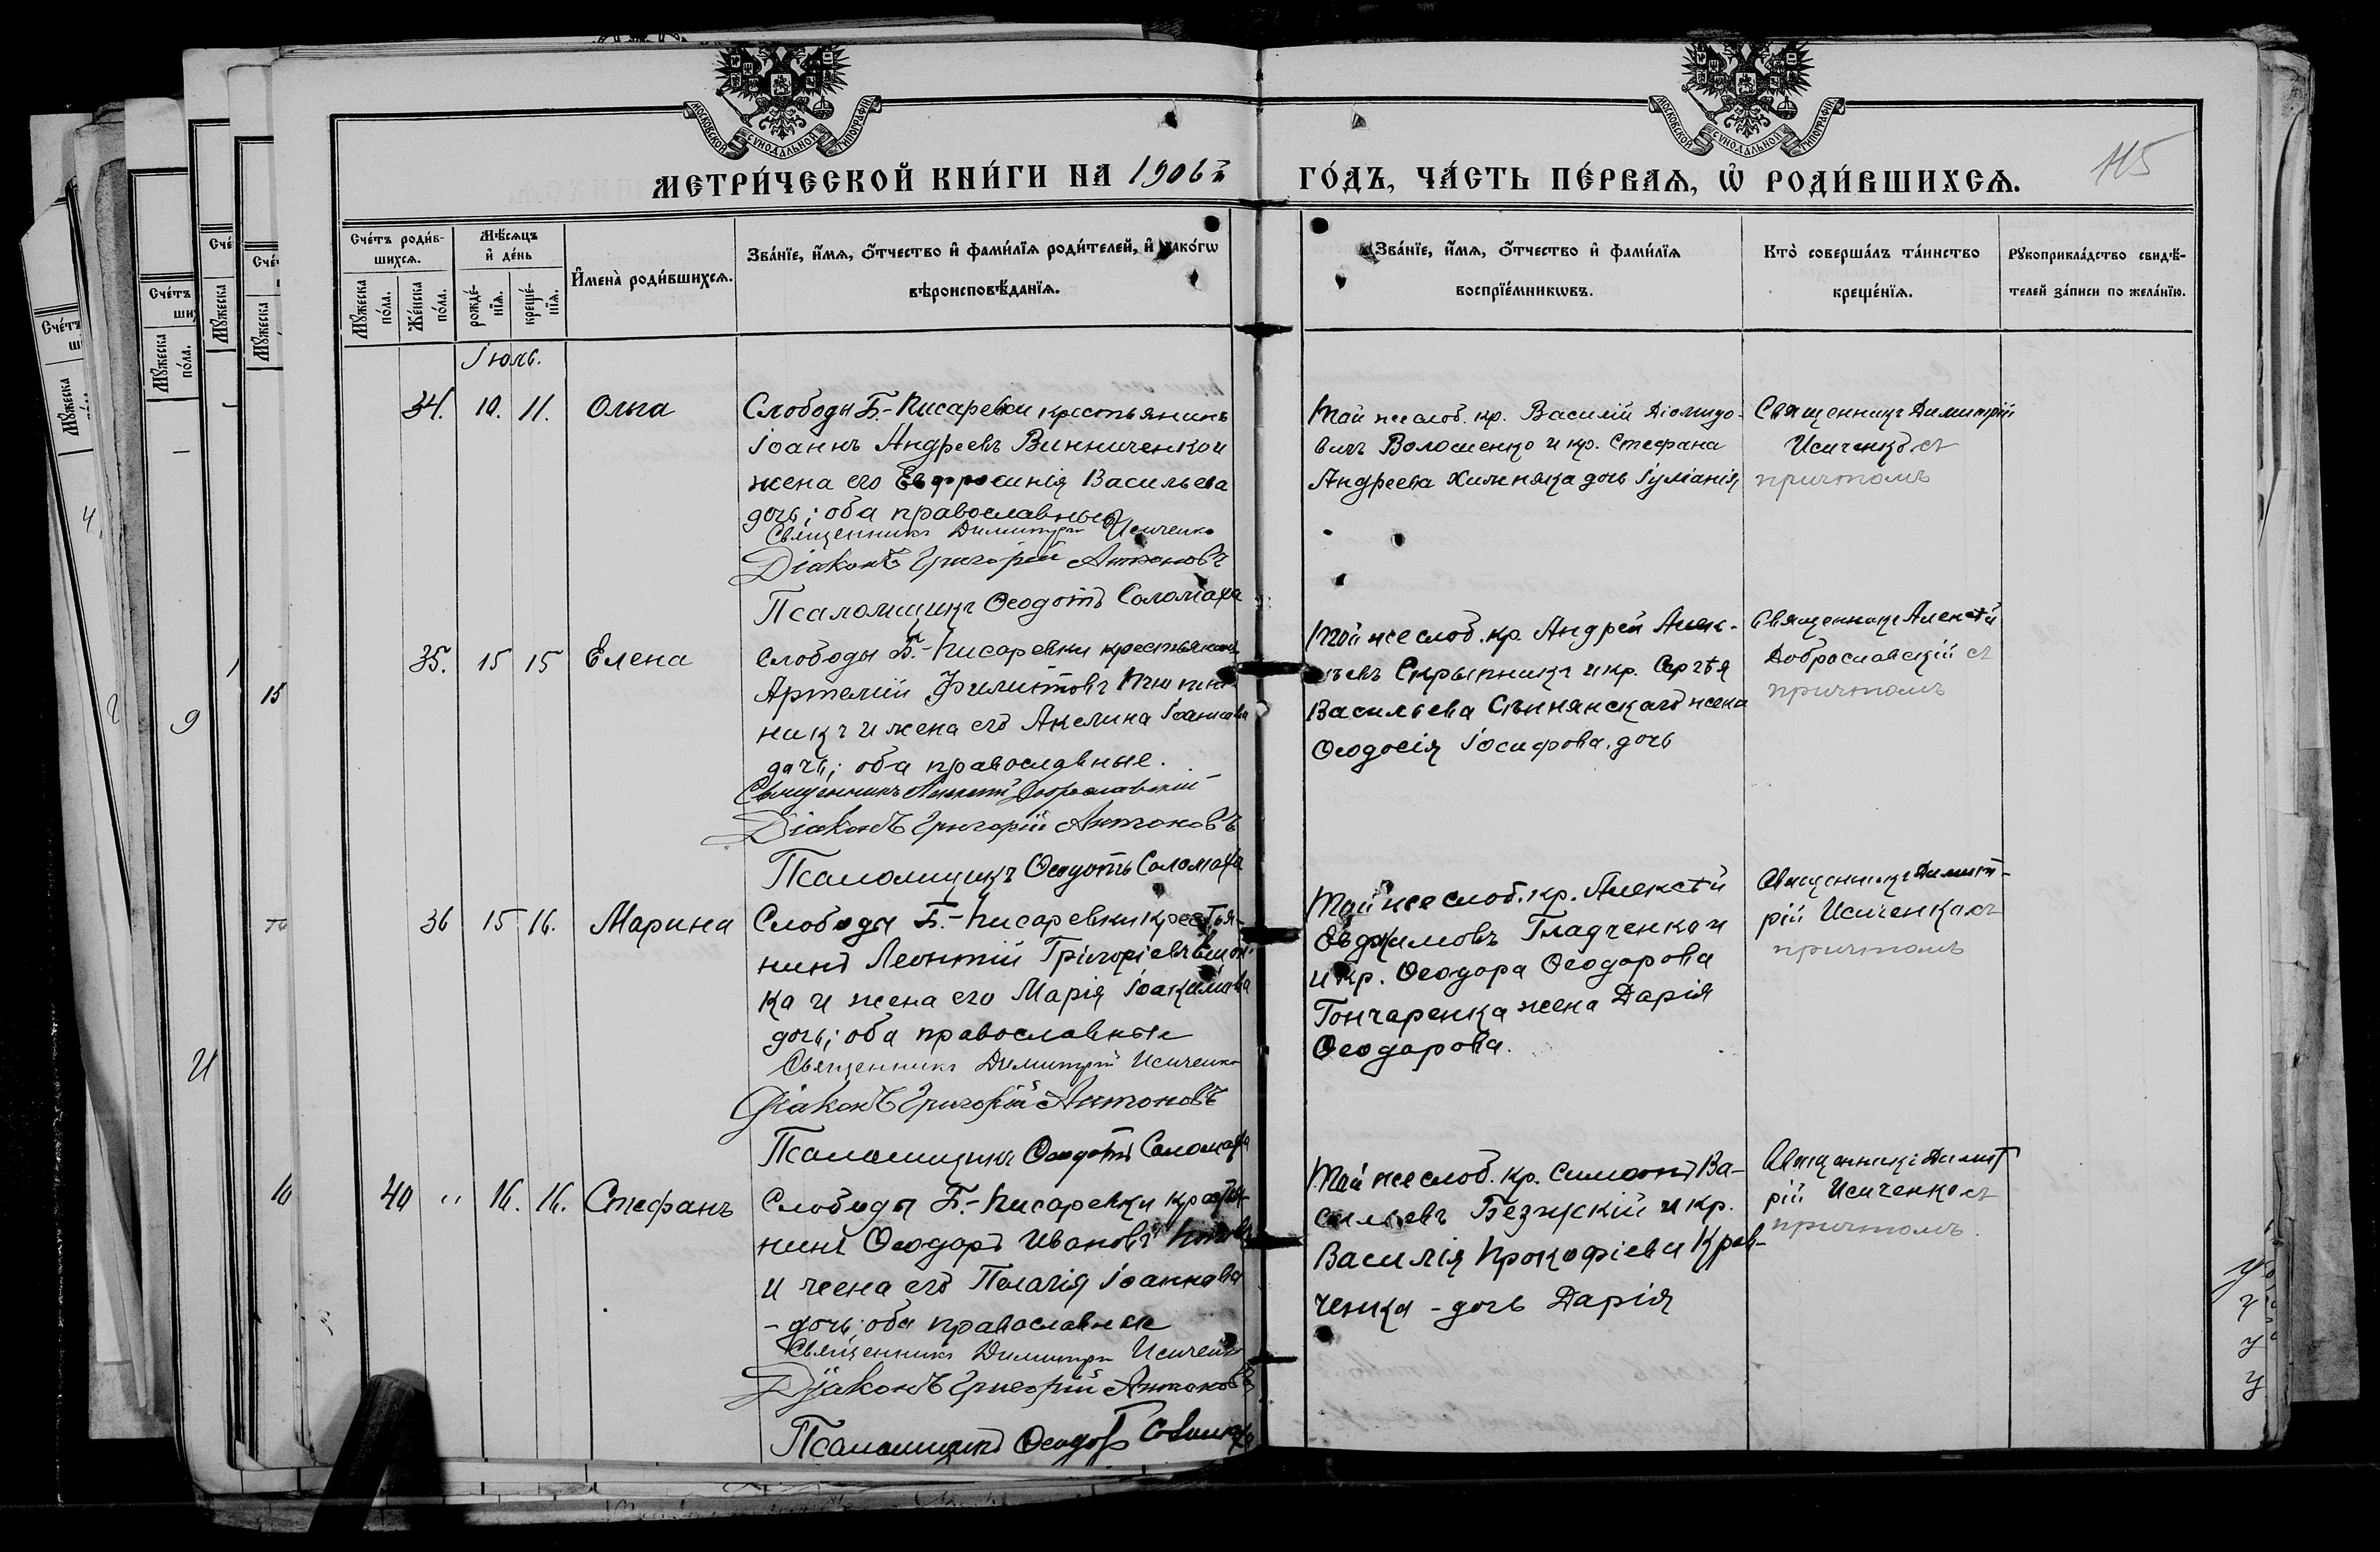 МОСКОВСКОЙ СѴНОДАЛЬНОЙ ТИПОГРАФІИ
МОСКОВСКОЙ СѴНОДАЛЬНОЙ ТИПОГРАФІИ
МЕТРИ́ЧЕСКОЙ КНИ́ГИ НА 1906й ГО́ДЪ, ЧА́СТЬ ПЕ́РВАѦ, Ѡ РОДИ́ВШИХСѦ.
115
Сче́тъ роди́в-
шихсѧ.
Мꙋ́жеска по́ла.
Же́нска по́ла.
Мѣ́сѧцъ
и҆ де́нь
рожде́-
нїѧ.
креще́-
нїѧ.
И҆мена̀ роди́вшихсѧ.
Зва́нїе, и҆́мѧ, ѻ҆́тчество и҆ фами́лїѧ роди́телей, и҆ како́гѡ
вѣроисповѣ́данїѧ.
Зва́нїе, и҆́мѧ, ѻ҆́тчество и҆ фами́лїѧ
воспрїе́мникѡвъ.
Кто̀ соверша́лъ та́инство
креще́нїѧ.
Рꙋкоприкла́дство свидѣ́-
телей за́писи по жела́нїю.
Іюль.
34. 10. 11. Ольга
Слободы Б.-Писаревки крестьянинъ
Іоаннъ Андреевъ Винниченко и
жена его Евфросинія Васильева
дочь; оба православные
Священникъ Димитрій Исиченко
Діаконъ Григорій Антоновъ
Псаломщикъ Ѳеодотъ Соломаха
Той же слоб. кр. Василій Діомидо-
вичъ Волошенко и кр. Стефана
Андреева Хижняка дочь Іуліанія
Священникъ Димитрій
Исиченко съ
причтомъ
35. 15 15 Елена
Слободы Б.-Писаревки крестьянинъ
Артемій Филитовъ
никъ и жена его Акелина Іоаннова
дочь; оба православные.
Священникъ Алексѣй Доброславскій
Діаконъ Григорій Антоновъ
Псаломщикъ Ѳеодотъ Соломаха
Той же слоб. кр. Андрей Алек-
ѣевъ Скрыпникъ и кр. Сергѣя
Васильева Сѣннянскаго жена
Ѳеодосія Іосифова дочь
Священникъ Алексѣй
Доброславскій съ
причтомъ
36 15 16. Марина
Слободы Б.-Писаревки крестья-
нинъ Леонтій Григоріевъ
ка и жена его Марія Іоакимова
дочь; оба православные
Священникъ Димитрій Исиченко
Діаконъ Григорій Антоновъ
Псаломщикъ Ѳеодотъ Соломаха
Той же слоб. кр. Алексѣй
Евфимовъ Гладченко и
и кр. Ѳеодора Ѳеодорова
Гончаренка жена Дарія
Ѳеодорова.
Священникъ Димит-
рій Исиченко съ
причтомъ
40 " 16. 16. Стефанъ
Слободы Б.-Писаревки крестья-
нинъ Ѳеодоръ Ивановъ
и жена его Пелагія Іоаннова
- дочь; оба православные
Священникъ Димитрій Исиченко
Діаконъ Григорій Антоновъ
Псаломщикъ Ѳеодотъ Соломаха
Той же слоб. кр. Симеонъ Ва-
сильевъ Безускій и кр.
Василія Прокофіева Крав-
ченка - дочь Дарія
Священникъ Димит
рій Исиченко съ
причтомъ.